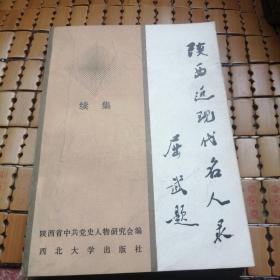 陕西近现代名人录
屈武题
续集
陕西省中共党史人物研究会编
西北大学出版社